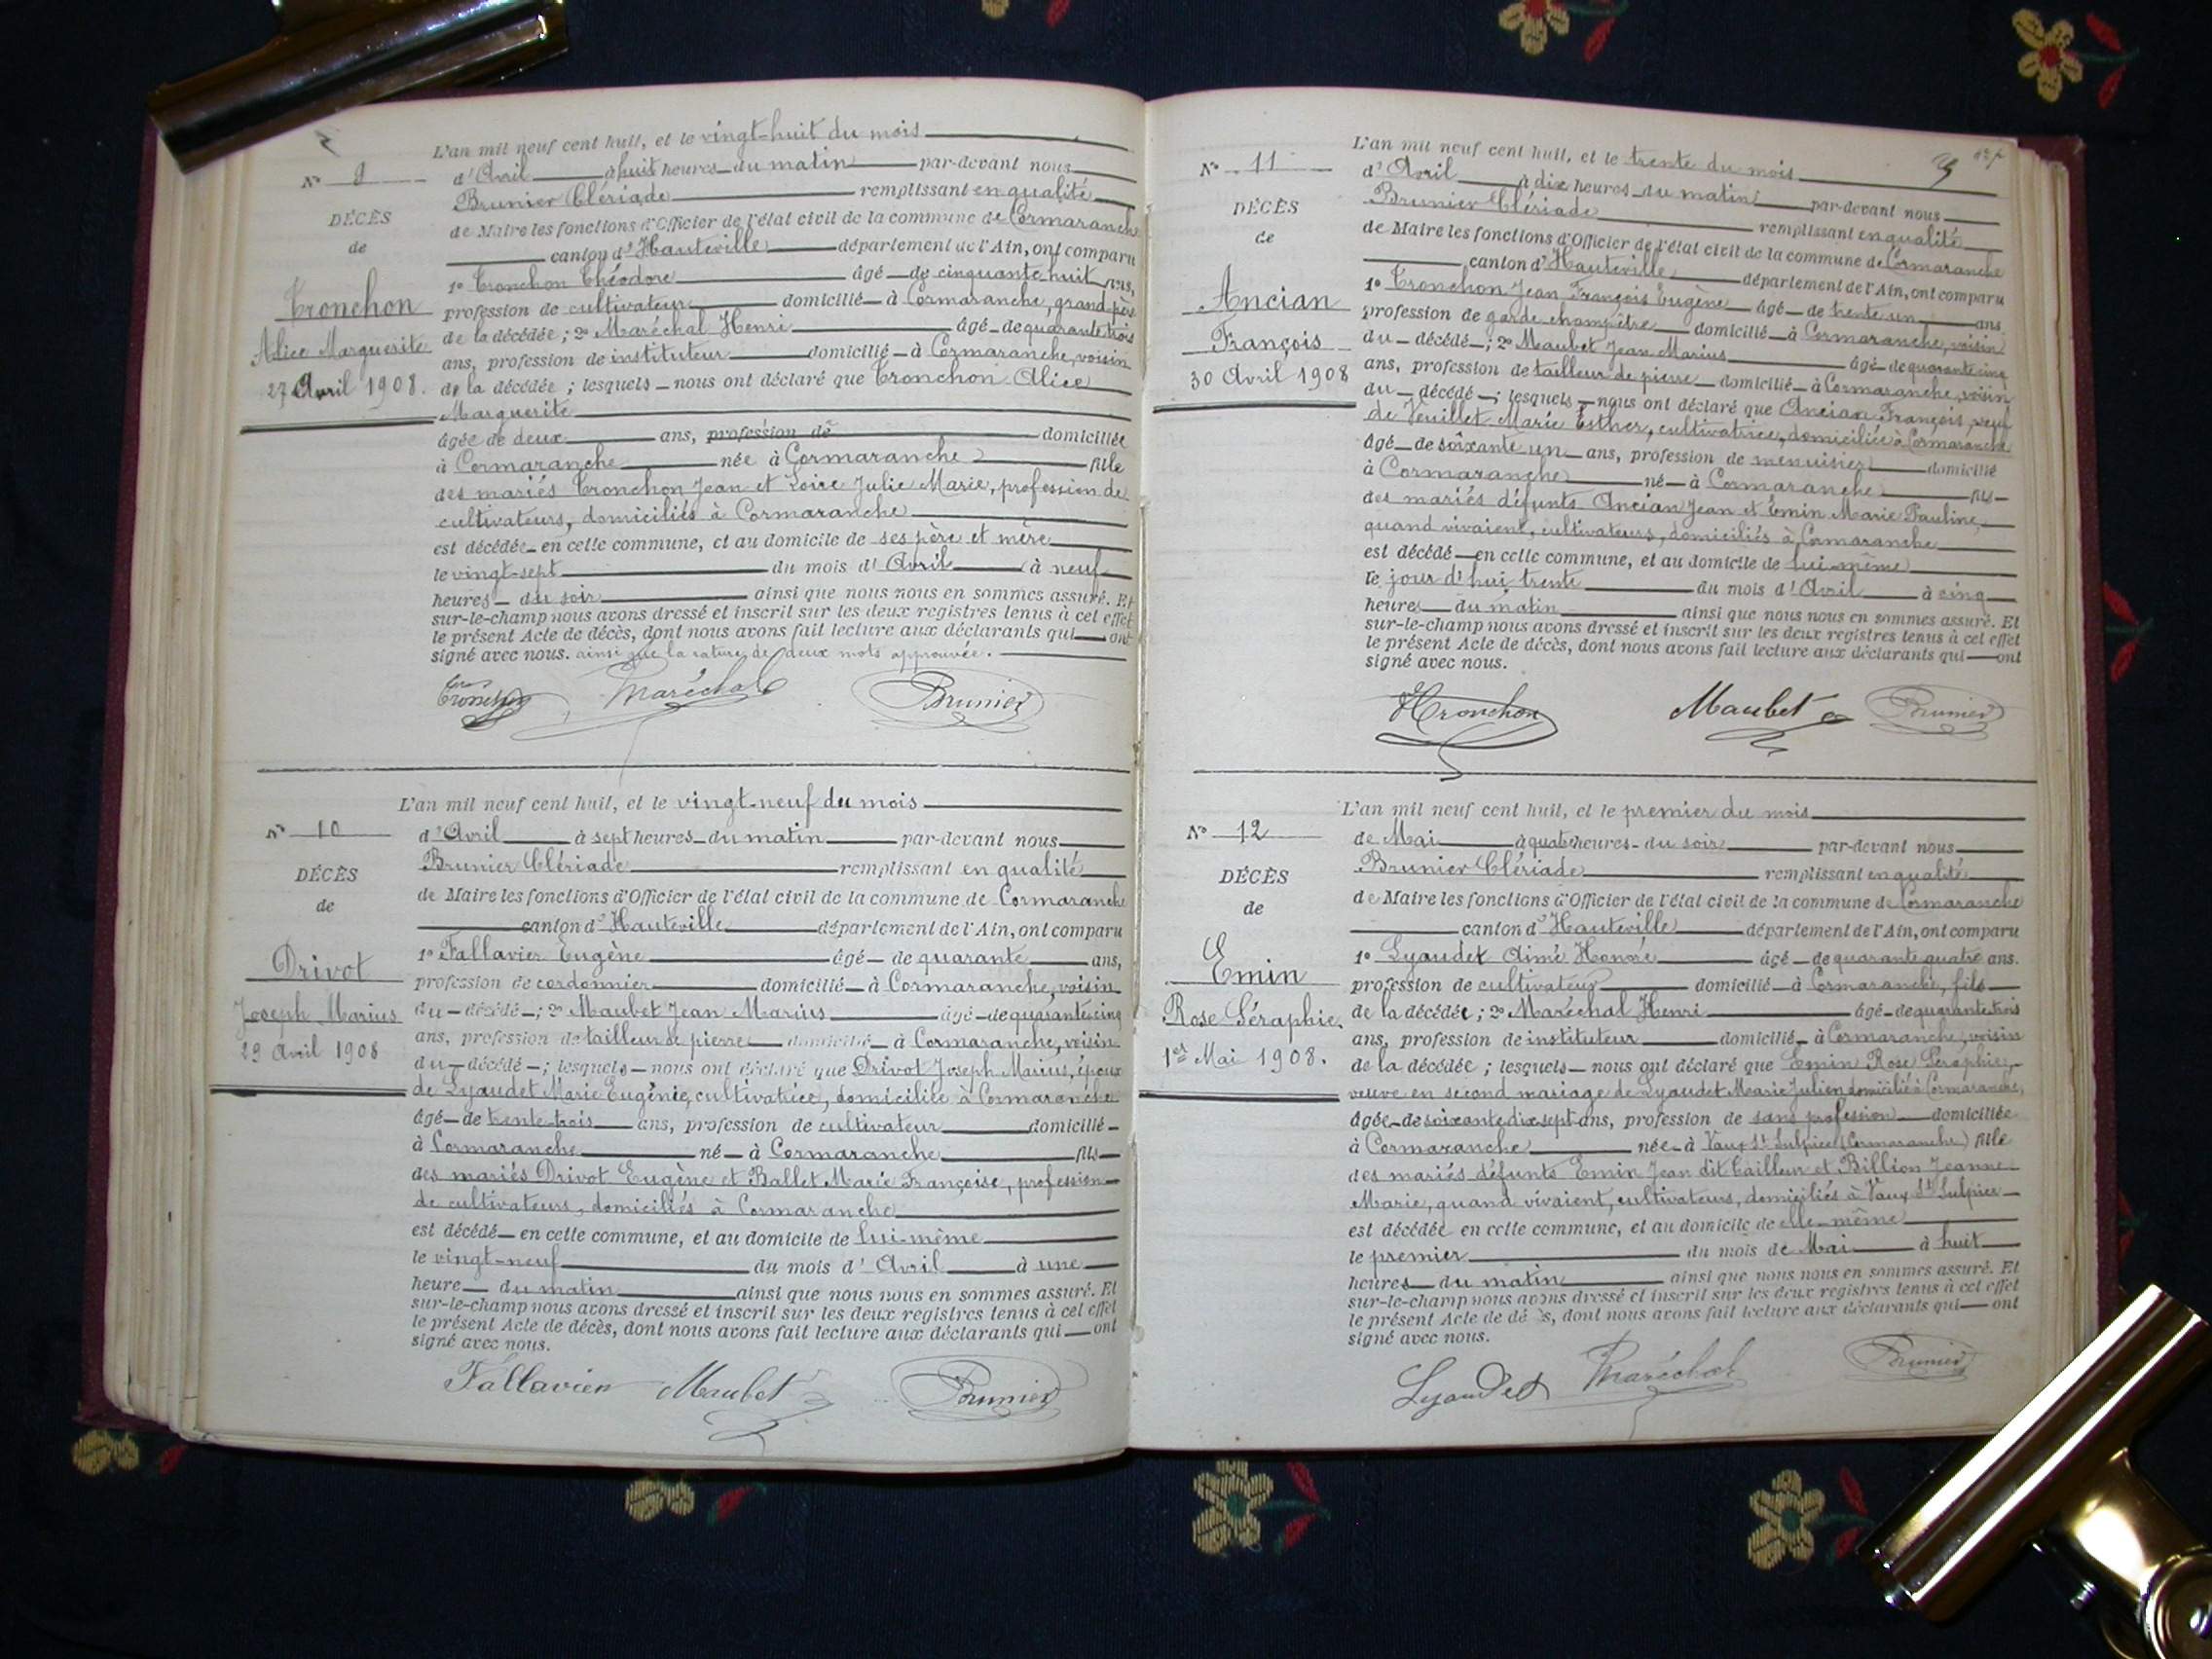 N° 9
DÉCÈS
de
Tronchon
Alice Marguerite
27 Avril 1908.
L'an mil neuf cent huit, et le vingt-huit du mois
d'Avril à huit heures du matin par-devant nous
Brunier Clériade remplissant en qualité
de Maire les fonctions d'Officier de l'état civil de la commune de Cormaranche
canton d'Hauteville département de l'Ain, ont comparu
1° Tronchon Théodore âgé de cinquante-huit ans,
profession de cultivateur domicilié à Cormaranche, grand-père
de la décédée ; 2° Maréchal Henri âgé de quarante trois
ans, profession de instituteur domicilié à Cormaranche, voisin
de la décédée ; lesquels nous ont déclaré que Tronchon Alice
Marguerite
âgée de deux ans, profession de domiciliée
à Cormaranche née à Cormaranche fille
des mariés Tronchon Jean et Loire Julie Marie, profession de
cultivateurs, domiciliés à Cormaranche
est décédée en cette commune, et au domicile de ses père et mère
le vingt-sept du mois d'Avril à neuf
heures du soir ainsi que nous nous en sommes assuré. Et
sur-le-champ nous avons dressé et inscrit sur les deux registres tenus à cet effet
le présent Acte de décès, dont nous avons fait lecture aux déclarants qui ont
signé avec nous. ainsi que la rature de deux mots approuvée.
Tronchon Maréchal Brunier
N° 10
DÉCÈS
de
Drivot
Joseph Marius
29 Avril 1908
L'an mil neuf cent huit, et le vingt-neuf du mois
d'Avril à sept heures du matin par-devant nous
Brunier Clériade remplissant en qualité
de Maire les fonctions d'Officier de l'état civil de la commune de Cormaranche
canton d'Hauteville département de l'Ain, ont comparu
1° Fallavier Eugène âgé de quarante ans,
profession de cordonnier domicilié à Cormaranche, voisin
du décédé ; 2° Maubet Jean Marius âgé de quarante cinq
ans, profession de tailleur de pierre domicilié à Cormaranche, voisin
du décédé ; lesquels nous ont déclaré que Drivot Joseph Marius, époux
de Lyaudet Marie Eugénie, cultivatrice, domiciliée à Cormaranche
âgé de trente-trois ans, profession de cultivateur domicilié
à Cormaranche né à Cormaranche fils
des mariés Drivot Eugène et Ballet Marie Françoise, profession
de cultivateurs, domiciliés à Cormaranche
est décédé en cette commune, et au domicile de lui-même
le vingt-neuf du mois d'Avril à une
heure du matin ainsi que nous nous en sommes assuré. Et
sur-le-champ nous avons dressé et inscrit sur les deux registres tenus à cet effet
le présent Acte de décès, dont nous avons fait lecture aux déclarants qui ont
signé avec nous.
Fallavier Maubet Brunier
N° 11
DÉCÈS
de
Ancian
François
30 Avril 1908
L'an mil neuf cent huit, et le trente du mois
d'Avril à dix heures du matin par-devant nous
Brunier Clériade remplissant en qualité
de Maire les fonctions d'Officier de l'état civil de la commune de Cormaranche
canton d'Hauteville département de l'Ain, ont comparu
1° Tronchon Jean François Eugène âgé de trente un ans
profession de garde champêtre domicilié à Cormaranche, voisin
du décédé ; 2° Maubet Jean Marius âgé de quarante cinq
ans, profession de tailleur de pierre domicilié à Cormaranche, voisin
du décédé ; lesquels nous ont déclaré que Ancian François, veuf
de Veuillet Marie Esther, cultivatrice, domiciliée à Cormaranche
âgé de soixante un ans, profession de menuisier domicilié
à Cormaranche né à Cormaranche fils
des mariés défunts Ancian Jean et Emin Marie Pauline,
quand vivaient, cultivateurs, domiciliés à Cormaranche
est décédé en cette commune, et au domicile de lui-même
le jour d'hui trente du mois d'Avril à cinq
heures du matin ainsi que nous nous en sommes assuré. Et
sur-le-champ nous avons dressé et inscrit sur les deux registres tenus à cet effet
le présent Acte de décès, dont nous avons fait lecture aux déclarants qui ont
signé avec nous.
Tronchon Maubet Brunier
N° 12
DÉCÈS
de
Emin
Rose Séraphie.
1er Mai 1908.
L'an mil neuf cent huit, et le premier du mois
de Mai à quatre heures du soir par-devant nous
Brunier Clériade remplissant en qualité
de Maire les fonctions d'Officier de l'état civil de la commune de Cormaranche
canton d'Hauteville département de l'Ain, ont comparu
1° Lyaudet Aimé Honoré âgé de quarante quatre ans.
profession de cultivateur domicilié à Cormaranche, fils
de la décédée ; 2° Maréchal Henri âgé de quarante trois
ans, profession de instituteur domicilié à Cormaranche, voisin
de la décédée ; lesquels nous ont déclaré que Emin Rose Séraphie,
veuve en second mariage de Lyaudet Marie Julien domicilié à Cormaranche,
âgée de soixante dix sept ans, profession de sans profession domiciliée
à Cormaranche née à Vaux St Sulpice (Cormaranche) fille
des mariés défunts Emin Jean dit Tailleur et Billion Jeanne
Marie, quand vivaient, cultivateurs, domiciliés à Vaux St Sulpice
est décédée en cette commune, et au domicile de elle-même
le premier du mois de Mai à huit
heures du matin ainsi que nous nous en sommes assuré. Et
sur-le-champ nous avons dressé et inscrit sur les deux registres tenus à cet effet
le présent Acte de décès, dont nous avons fait lecture aux déclarants qui ont
signé avec nous.
Lyaudet Maréchal Brunier